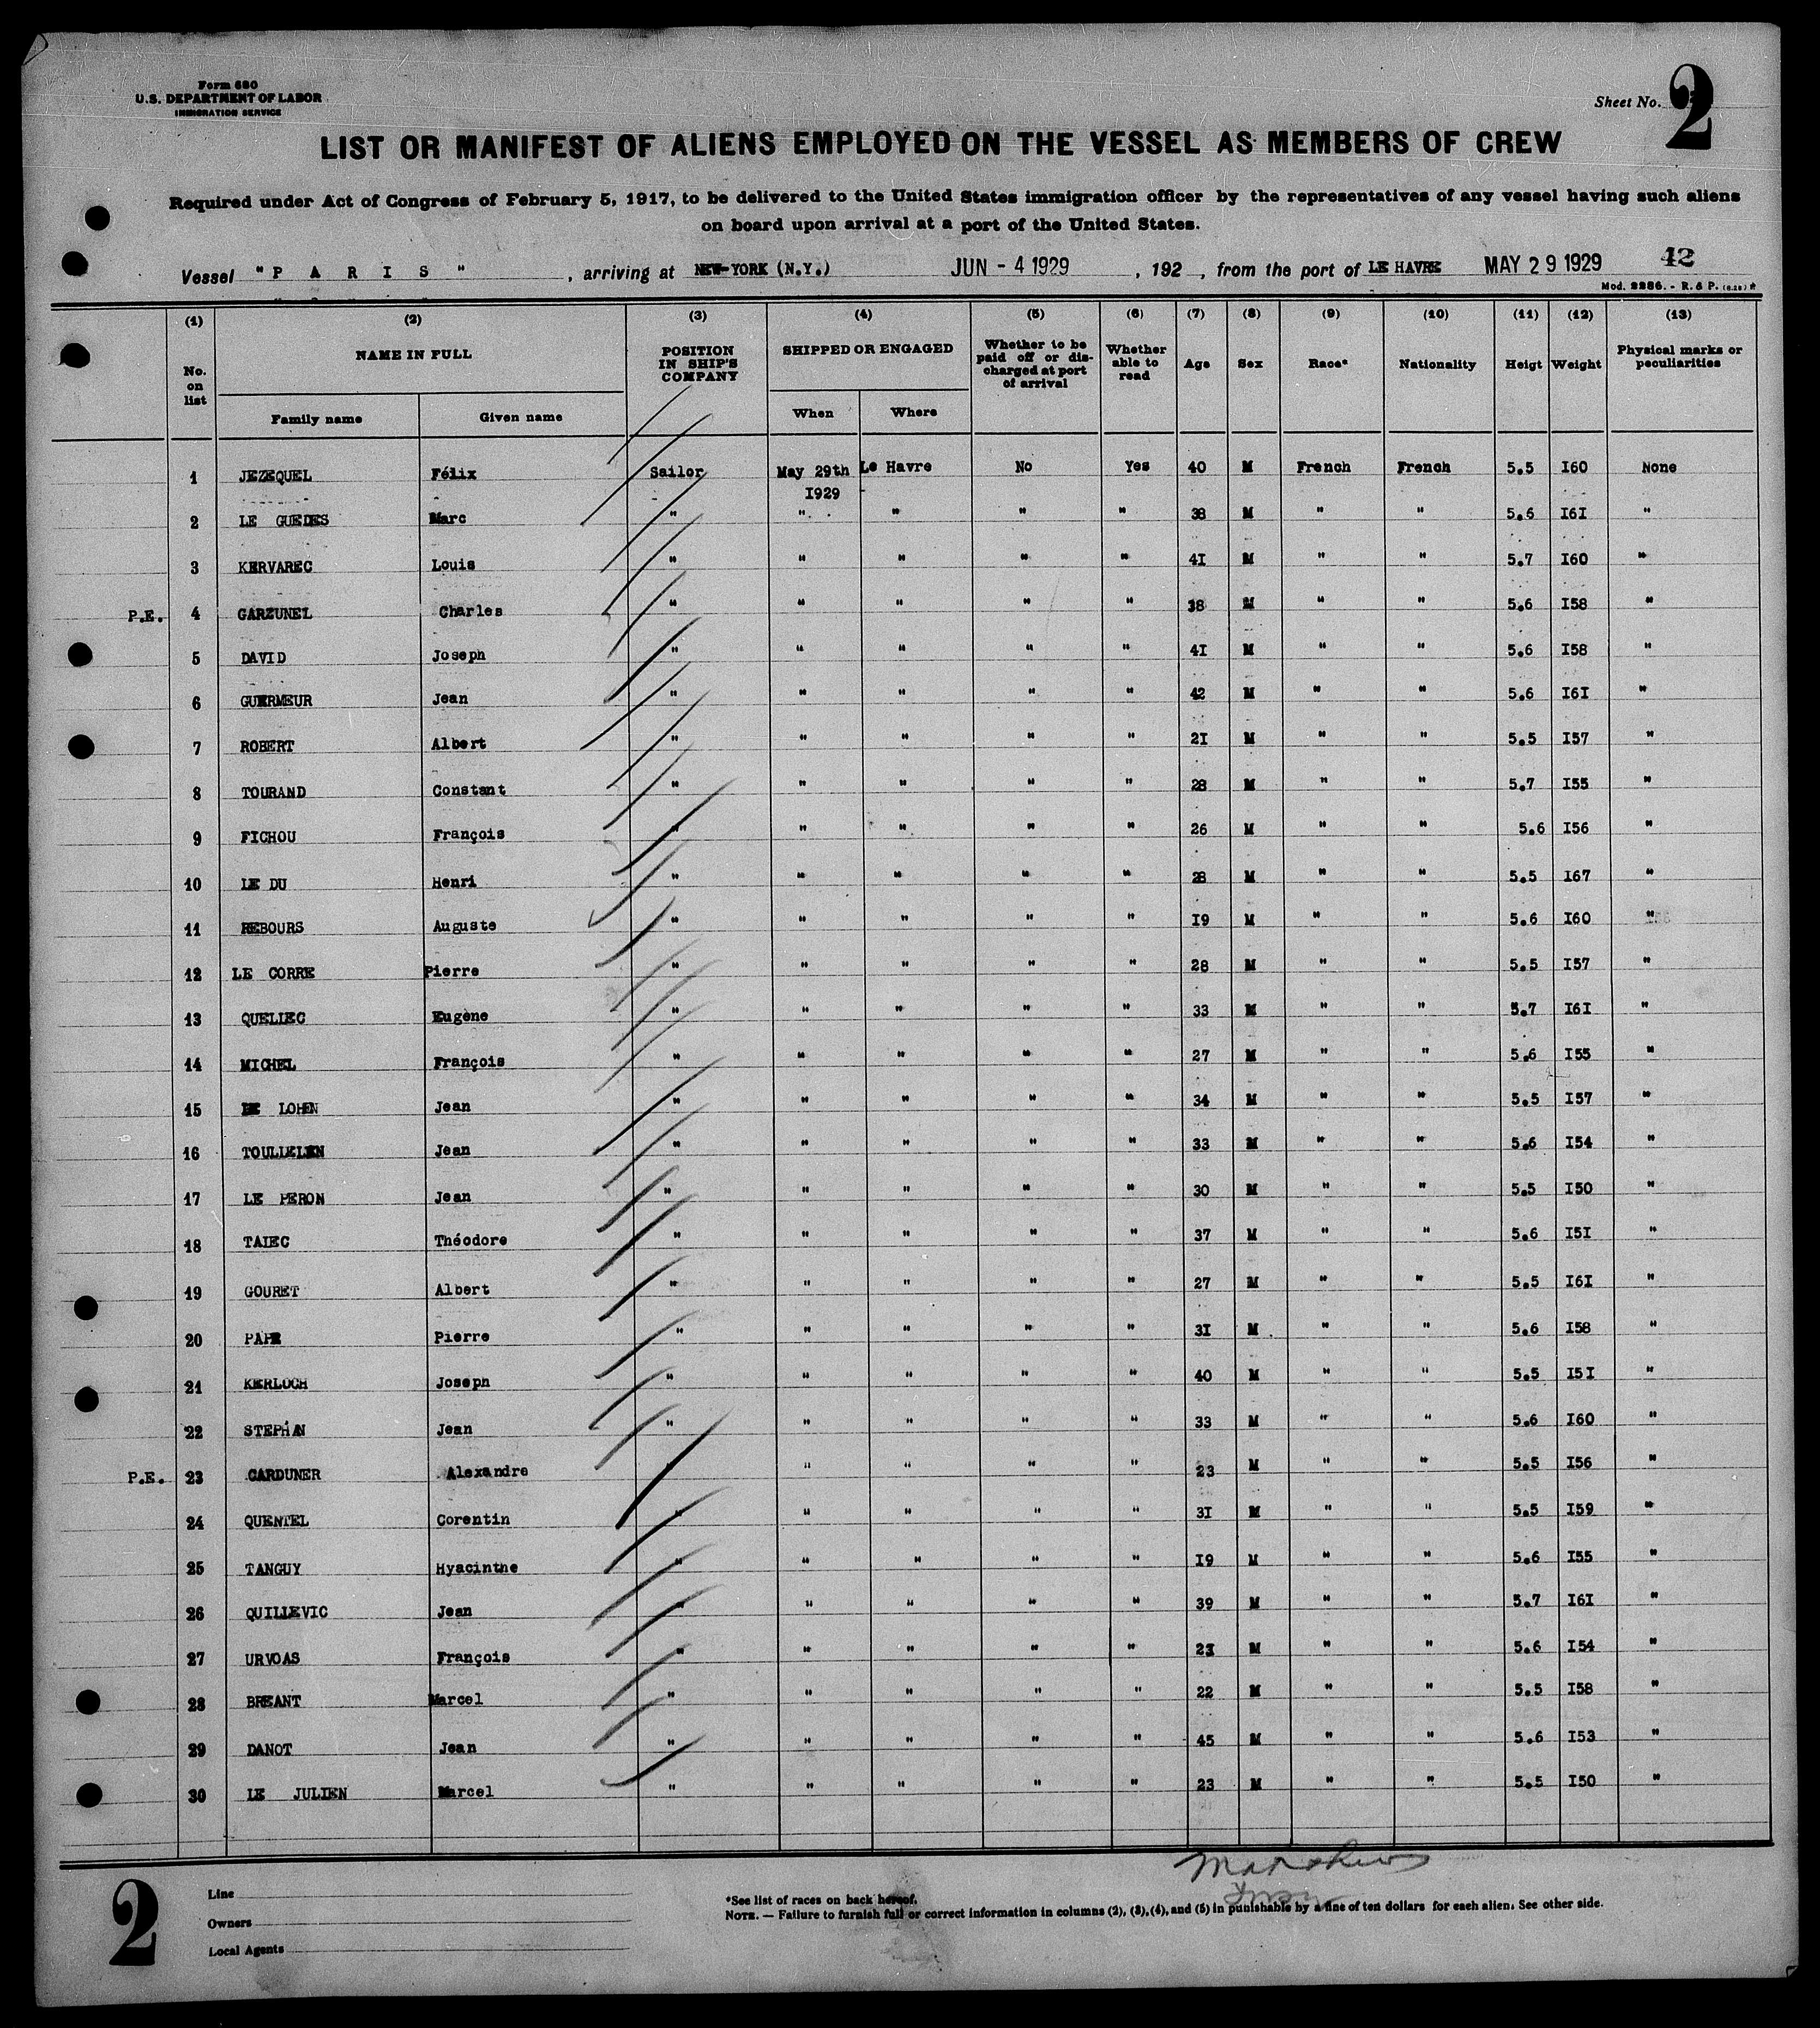 Form 680
U.S. DEPARTMENT OF LABOR
IMMIGRATION SERVICE
Sheet No. 2
LIST OR MANIFEST OF ALIENS EMPLOYED ON THE VESSEL AS MEMBERS OF CREW
Required under Act of Congress of February 5, 1917, to be delivered to the United States immigration officer by the representatives of any vessel having such aliens
on board upon arrival at a port of the United States.
Vessel "P A R I S", arriving at NEW-YORK (N.Y.) JUN - 4 1929, 192 , from the port of LE HAVRE MAY 29 1929 42
Mod. 2286. - R. & P. (6.28) *
(1) (2) (3) (4) (5) (6) (7) (8) (9) (10) (11) (12) (13)
No. on list NAME IN FULL Family name Given name POSITION IN SHIP'S COMPANY SHIPPED OR ENGAGED When Where Whether to be paid off or discharged at port of arrival Whether able to read Age Sex Race* Nationality Heigt Weight Physical marks or peculiarities
1 JEZEQUEL Félix Sailor May 29th 1929 Le Havre No Yes 40 M French French 5.5 I60 None
2 LE GUEDES Marc " " " " " 38 M " " 5.6 I6I "
3 KERVAREC Louis " " " " " 4I M " " 5.7 I60 "
P.E. 4 GARZUNEL Charles " " " " " 38 M " " 5.6 I58 "
5 DAVID Joseph " " " " " 4I M " " 5.6 I58 "
6 GUERMEUR Jean " " " " " 42 M " " 5.6 I6I "
7 ROBERT Albert " " " " " 2I M " " 5.5 I57 "
8 TOURAND Constant " " " " " 28 M " " 5.7 I55 "
9 FICHOU François " " " " " 26 M " " 5.6 I56 "
10 LE DU Henri " " " " " 28 M " " 5.5 I67 "
11 REBOURS Auguste " " " " " I9 M " " 5.6 I60 "
12 LE CORRE Pierre " " " " " 28 M " " 5.5 I57 "
13 QUELIEC Eugène " " " " " 33 M " " 5.7 I6I "
14 MICHEL François " " " " " 27 M " " 5.6 I55 "
15 LE LOHEN Jean " " " " " 34 M " " 5.5 I57 "
16 TOULLELEN Jean " " " " " 33 M " " 5.6 I54 "
17 LE PERON Jean " " " " " 30 M " " 5.5 I50 "
18 TALEC Théodore " " " " " 37 M " " 5.6 I5I "
19 GOURET Albert " " " " " 27 M " " 5.5 I6I "
20 PAPE Pierre " " " " " 3I M " " 5.6 I58 "
21 KERLOCH Joseph " " " " " 40 M " " 5.5 I5I "
22 STEPHAN Jean " " " " " 33 M " " 5.6 I60 "
P.E. 23 CARDUNER Alexandre " " " " " 23 M " " 5.5 I56 "
24 QUENTEL Corentin " " " " " 3I M " " 5.5 I59 "
25 TANGUY Hyacinthe " " " " " I9 M " " 5.6 I55 "
26 QUILLEVIC Jean " " " " " 39 M " " 5.7 I6I "
27 URVOAS François " " " " " 23 M " " 5.6 I54 "
28 BREANT Marcel " " " " " 22 M " " 5.5 I58 "
29 DANOT Jean " " " " " 45 M " " 5.6 I53 "
30 LE JULIEN Marcel " " " " " 23 M " " 5.5 I50 "
2
Line
Owners
Local Agents
*See list of races on back hereof.
NOTE. — Failure to furnish full or correct information in columns (2), (3), (4), and (5) in punishable by a fine of ten dollars for each alien. See other side.